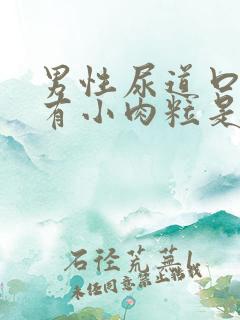 男性尿道口
有小肉粒是
石径荒芜
未经同意禁止转载